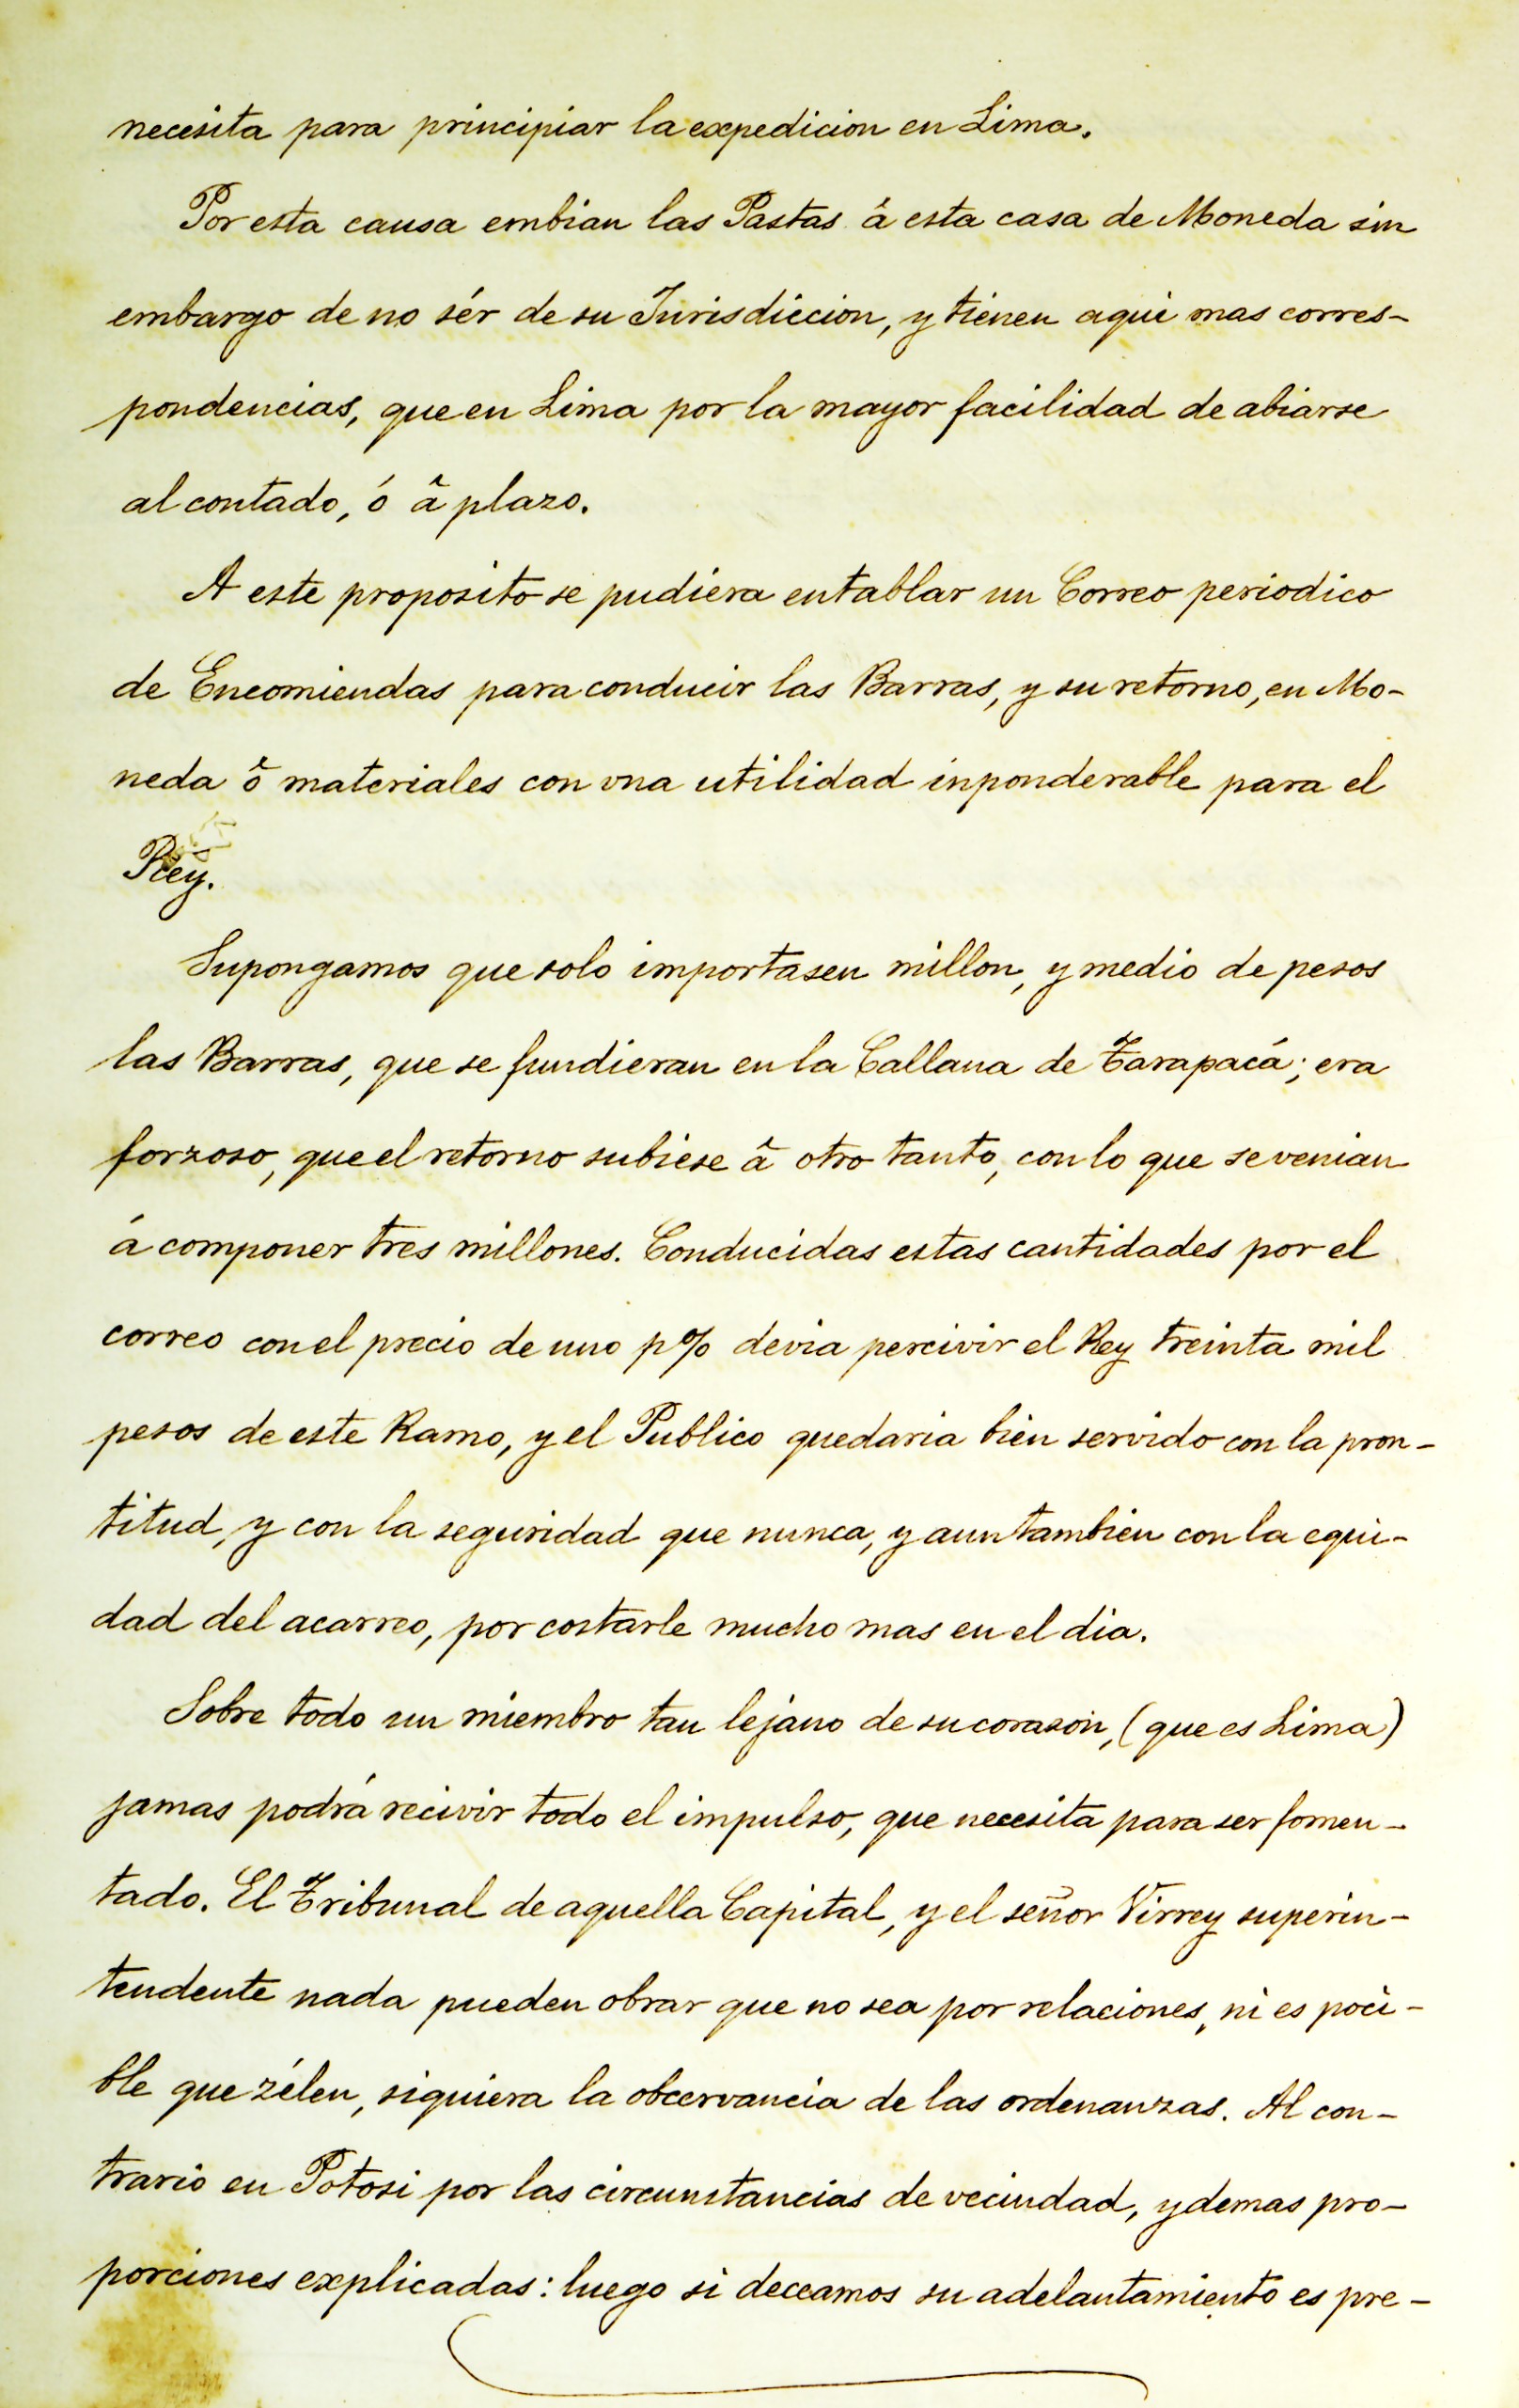 necesita para principiar la expedicion en Lima.
Por esta causa embian las Pastas â esta casa de Moneda sin
embargo de no sér de su Jurisdiccion, y tienen aqui mas corres-
pondencias, que en Lima por la mayor facilidad de abiarse
al contado, ó â plazo.
A este proposito se pudiera entablar un Correo periodico
de Encomiendas para conducir las Barras, y su retorno, en Mo-
neda ô materiales con vna utilidad inponderable para el
Rey.
Supongamos que solo importasen millon, y medio de pesos
las Barras, que se fundieran en la Callana de Tarapacá; era
forzoso, que el retorno subiese â otro tanto, con lo que se venian
á componer tres millones. Conducidas estas cantidades por el
correo con el precio de uno p% devia percivir el Rey treinta mil
pesos de este Ramo, y el Publico quedaria bien servido con la pron-
titud, y con la seguridad que nunca, y aun tambien con la equi-
dad del acarreo, por costarle mucho mas en el dia.
Sobre todo un miembro tan lejano de su corazón, (que es Lima)
jamas podrá recivir todo el impulso, que necesita para ser fomen-
tado. El Tribunal de aquella Capital, y el señor Virrey superin-
tendente nada pueden obrar que no sea por relaciones, ni es poci-
ble que zélen, siquiera la obcervancia de las ordenanzas. Al con-
trario en Potosi por las circunstancias de vecindad, y demas pro-
porciones explicadas: luego si deceamos su adelantamiento es pre-